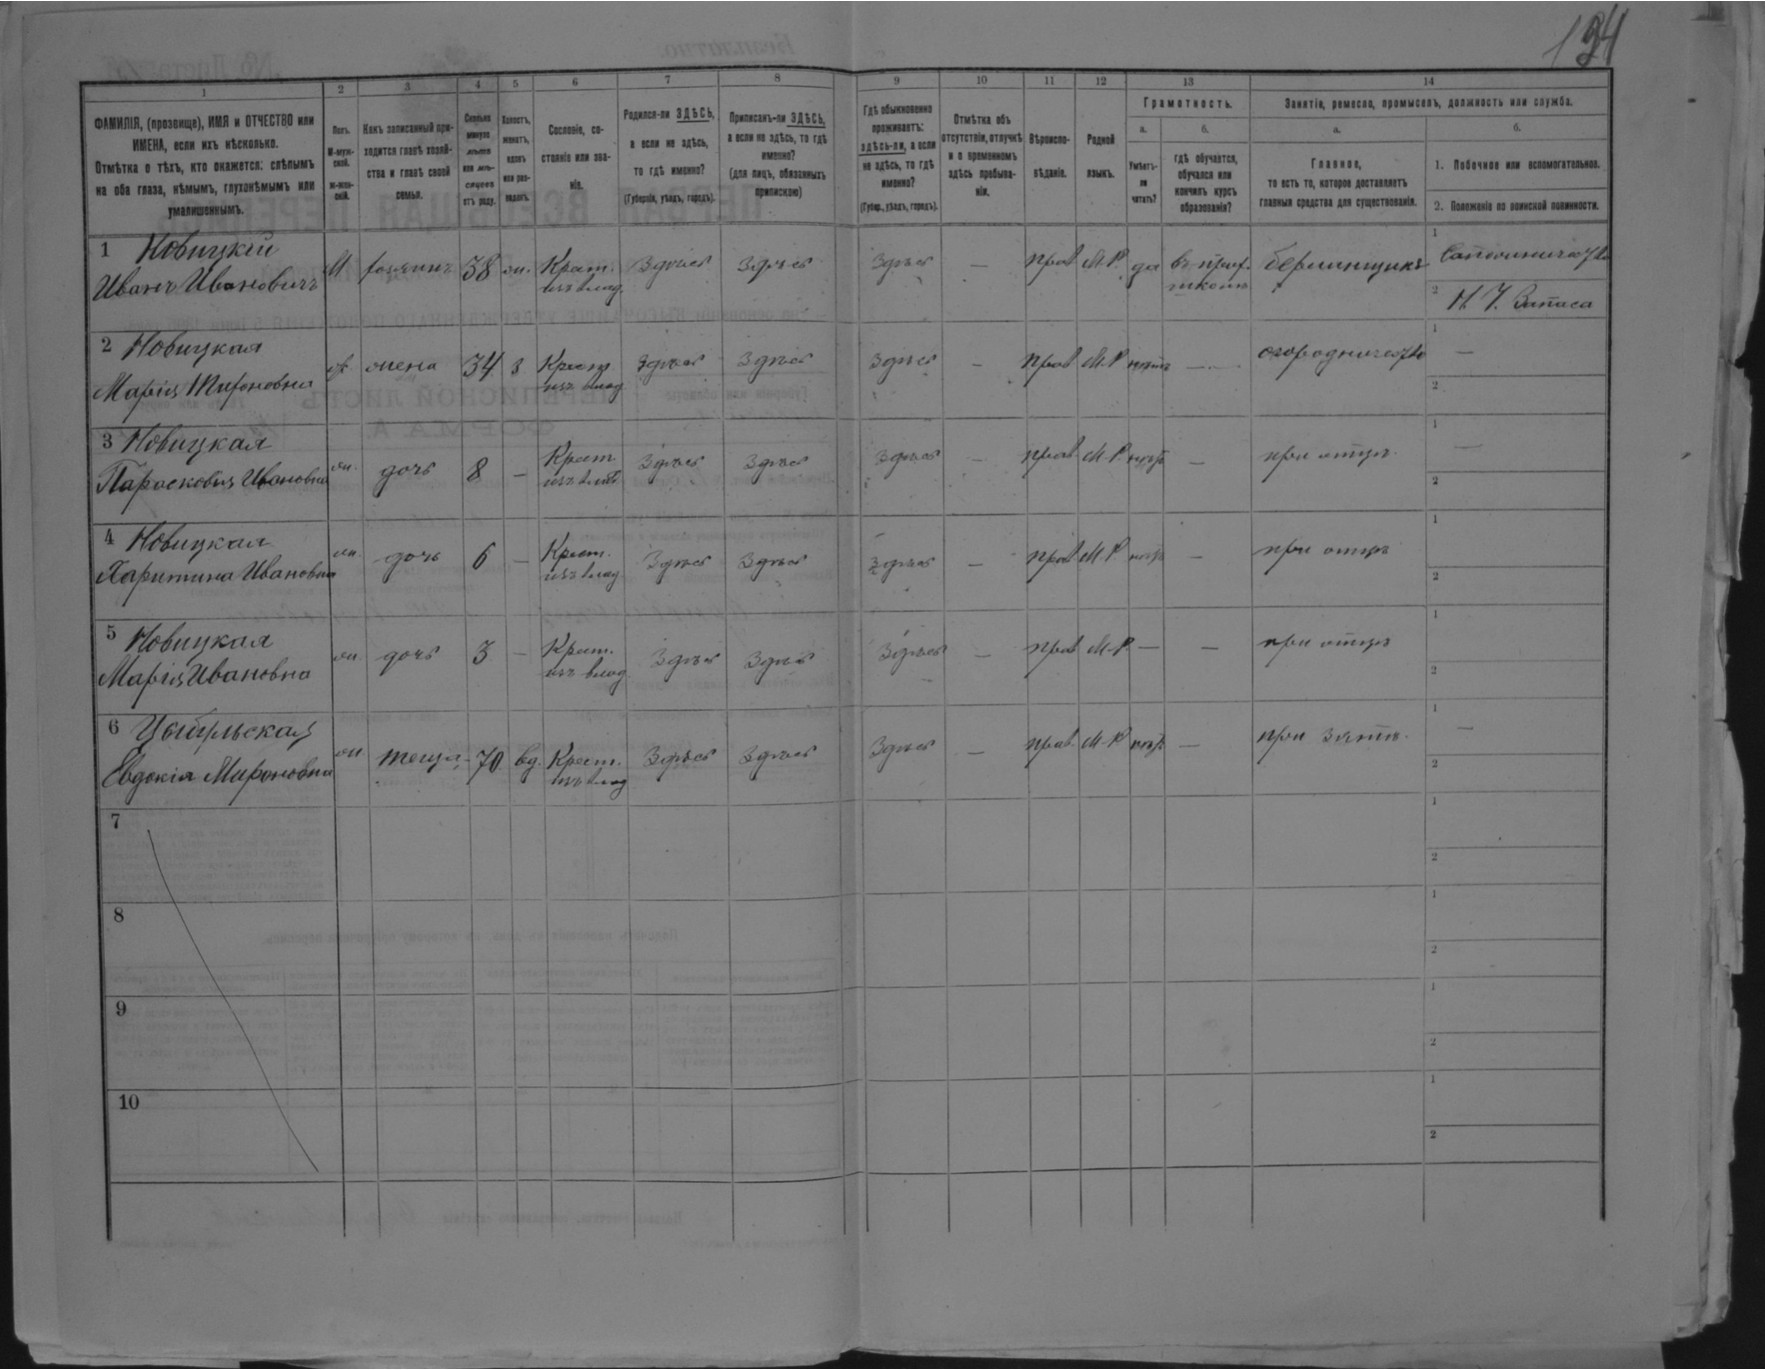 134
1 2 3 4 5 6 7 8 9 10 11 12 13 14
ФАМИЛІЯ, (прозвище), ИМЯ и ОТЧЕСТВО или
ИМЕНА, если ихъ нѣсколько.
Отмѣтка о тѣхъ, кто окажется: слѣпымъ
на оба глаза, нѣмымъ, глухонѣмымъ или
умалишеннымъ.
Полъ.
М-муж-
ской.
ж-жен-
скій.
Какъ записанный при-
ходится главѣ хозяй-
ства и главѣ своей
семьи.
Сколько
минуло
лѣтъ
или мѣ-
сяцевъ
отъ роду.
Холостъ,
женатъ,
вдовъ
или раз-
веденъ.
Сословіе, со-
стояніе или зва-
ніе.
Родился-ли ЗДѢСЬ,
а если не здѣсь,
то гдѣ именно?
(Губернія, уѣздъ, городъ).
Приписанъ-ли ЗДѢСЬ,
а если не здѣсь, то гдѣ
именно?
(для лицъ, обязанныхъ
припискою)
Гдѣ обыкновенно
проживаетъ:
здѣсь-ли, а если
не здѣсь, то гдѣ
именно?
(Губер., уѣздъ, городъ).
Отмѣтка объ
отсутствіи, отлучкѣ
и о временномъ
здѣсь пребыва-
ніи.
Вѣроиспо-
вѣданіе.
Родной
языкъ.
Грамотность.
а. б.
Умѣетъ-
ли
читать?
гдѣ обучается,
обучался или
кончилъ курсъ
образованія?
Занятіе, ремесло, промыселъ, должность или служба.
а. б.
Главное,
то есть то, которое доставляетъ
главныя средства для существованія.
1. Побочное или вспомогательное.
2. Положеніе по воинской повинности.
1 Новицкій
Иванъ Ивановичъ
М хозяинъ 38 ж. Крест.
изъ влад.
Здѣсь Здѣсь Здѣсь — прав М-Р. да въ приг.
школѣ
1
2 Н. Ч. Запаса
2 Новицкая
Марія Мироновна
ж жена 34 з Крест
изъ влад
Здѣсь Здѣсь Здѣсь — прав М-Р нѣтъ — огородничество
1 —
2
3 Новицкая
Парасковія Ивановна
ж. дочь 8 — Крест
изъ влад
Здѣсь Здѣсь Здѣсь — прав М-Р нѣтъ — при отцѣ
1 —
2
4 Новицкая
Харитина Ивановна
ж. дочь 6 — Крест.
изъ влад
Здѣсь Здѣсь Здѣсь — прав М-Р нѣтъ — при отцѣ
1
2
5 Новицкая
Марія Ивановна
ж. дочь 3 — Крест.
изъ влад
Здѣсь Здѣсь Здѣсь — прав М-Р. — — при отцѣ
1
2
6 Цыбульская
Евдокія Мироновна
ж. теща 70 вд. Крест.
изъ влад
Здѣсь Здѣсь Здѣсь — прав. М-Р нѣтъ — при зятѣ.
1 —
2
7
1
2
8
1
2
9
1
2
10
1
2